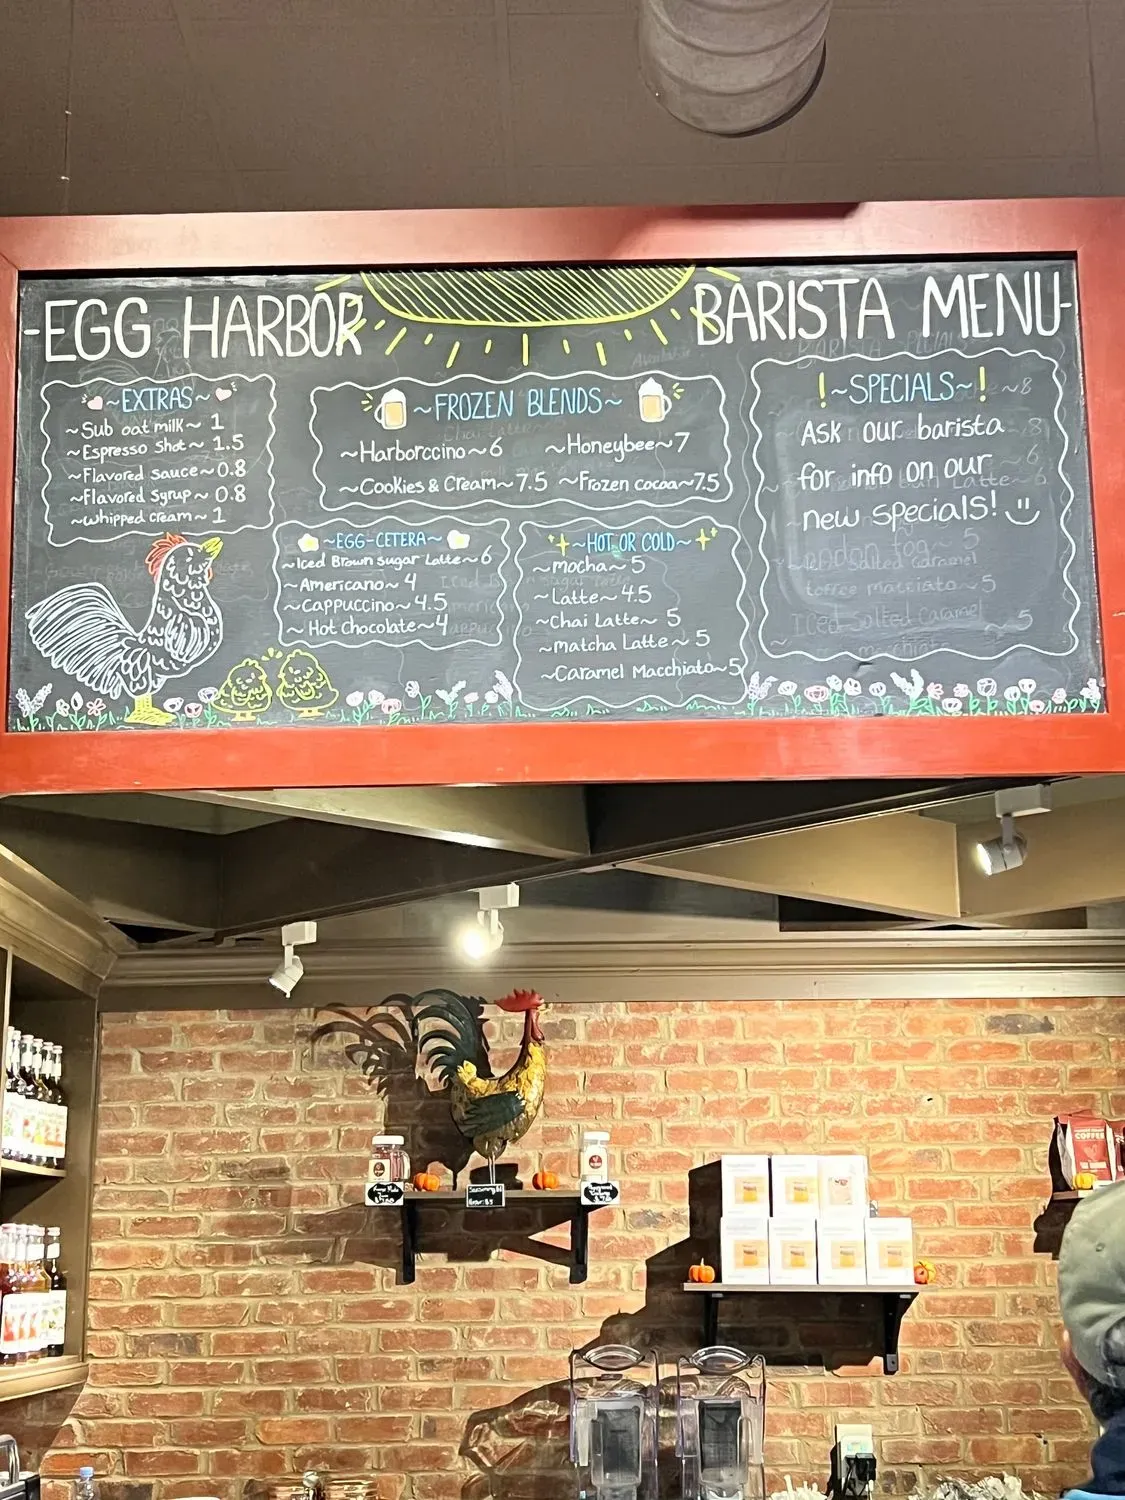 -EGG HARBOR BARISTA MENU-
~EXTRAS~
~Sub oat milk~ 1
~Espresso Shot~ 1.5
~Flavored Sauce~0.8
~Flavored Syrup~ 0.8
~whipped cream~ 1
~FROZEN BLENDS~
~Harborccino~6 ~Honeybee~7
~Cookies & Cream~7.5 ~Frozen cocoa~7.5
~EGG-CETERA~
~Iced Brown Sugar Latte~6
~Americano~ 4
~Cappuccino~ 4.5
~Hot Chocolate~4
~HOT OR COLD~
~mocha~ 5
~Latte~ 4.5
~Chai Latte~ 5
~matcha Latte~ 5
~Caramel Macchiato~5
!~SPECIALS~!
Ask our barista
for info on our
new specials!
COFFEE